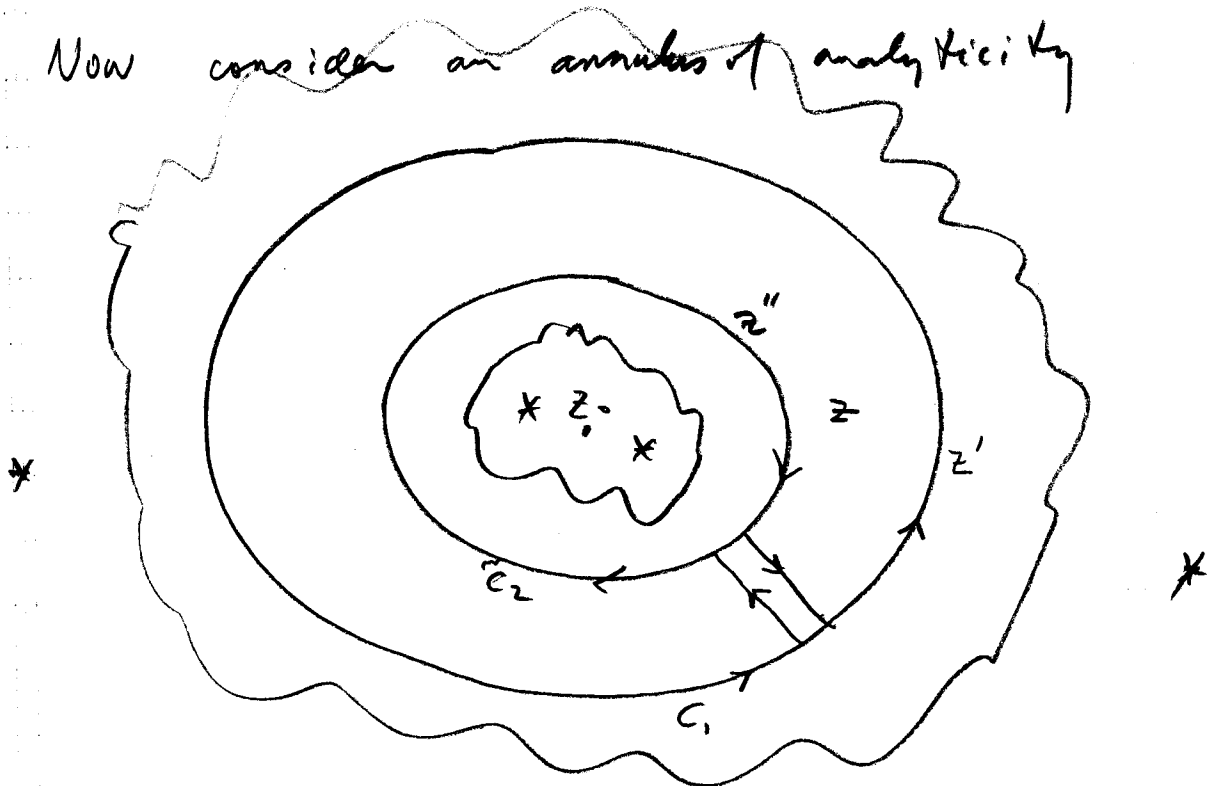 Now consider an annulus of analyticity
z''
z
z.
z'
C̃₂
C₁